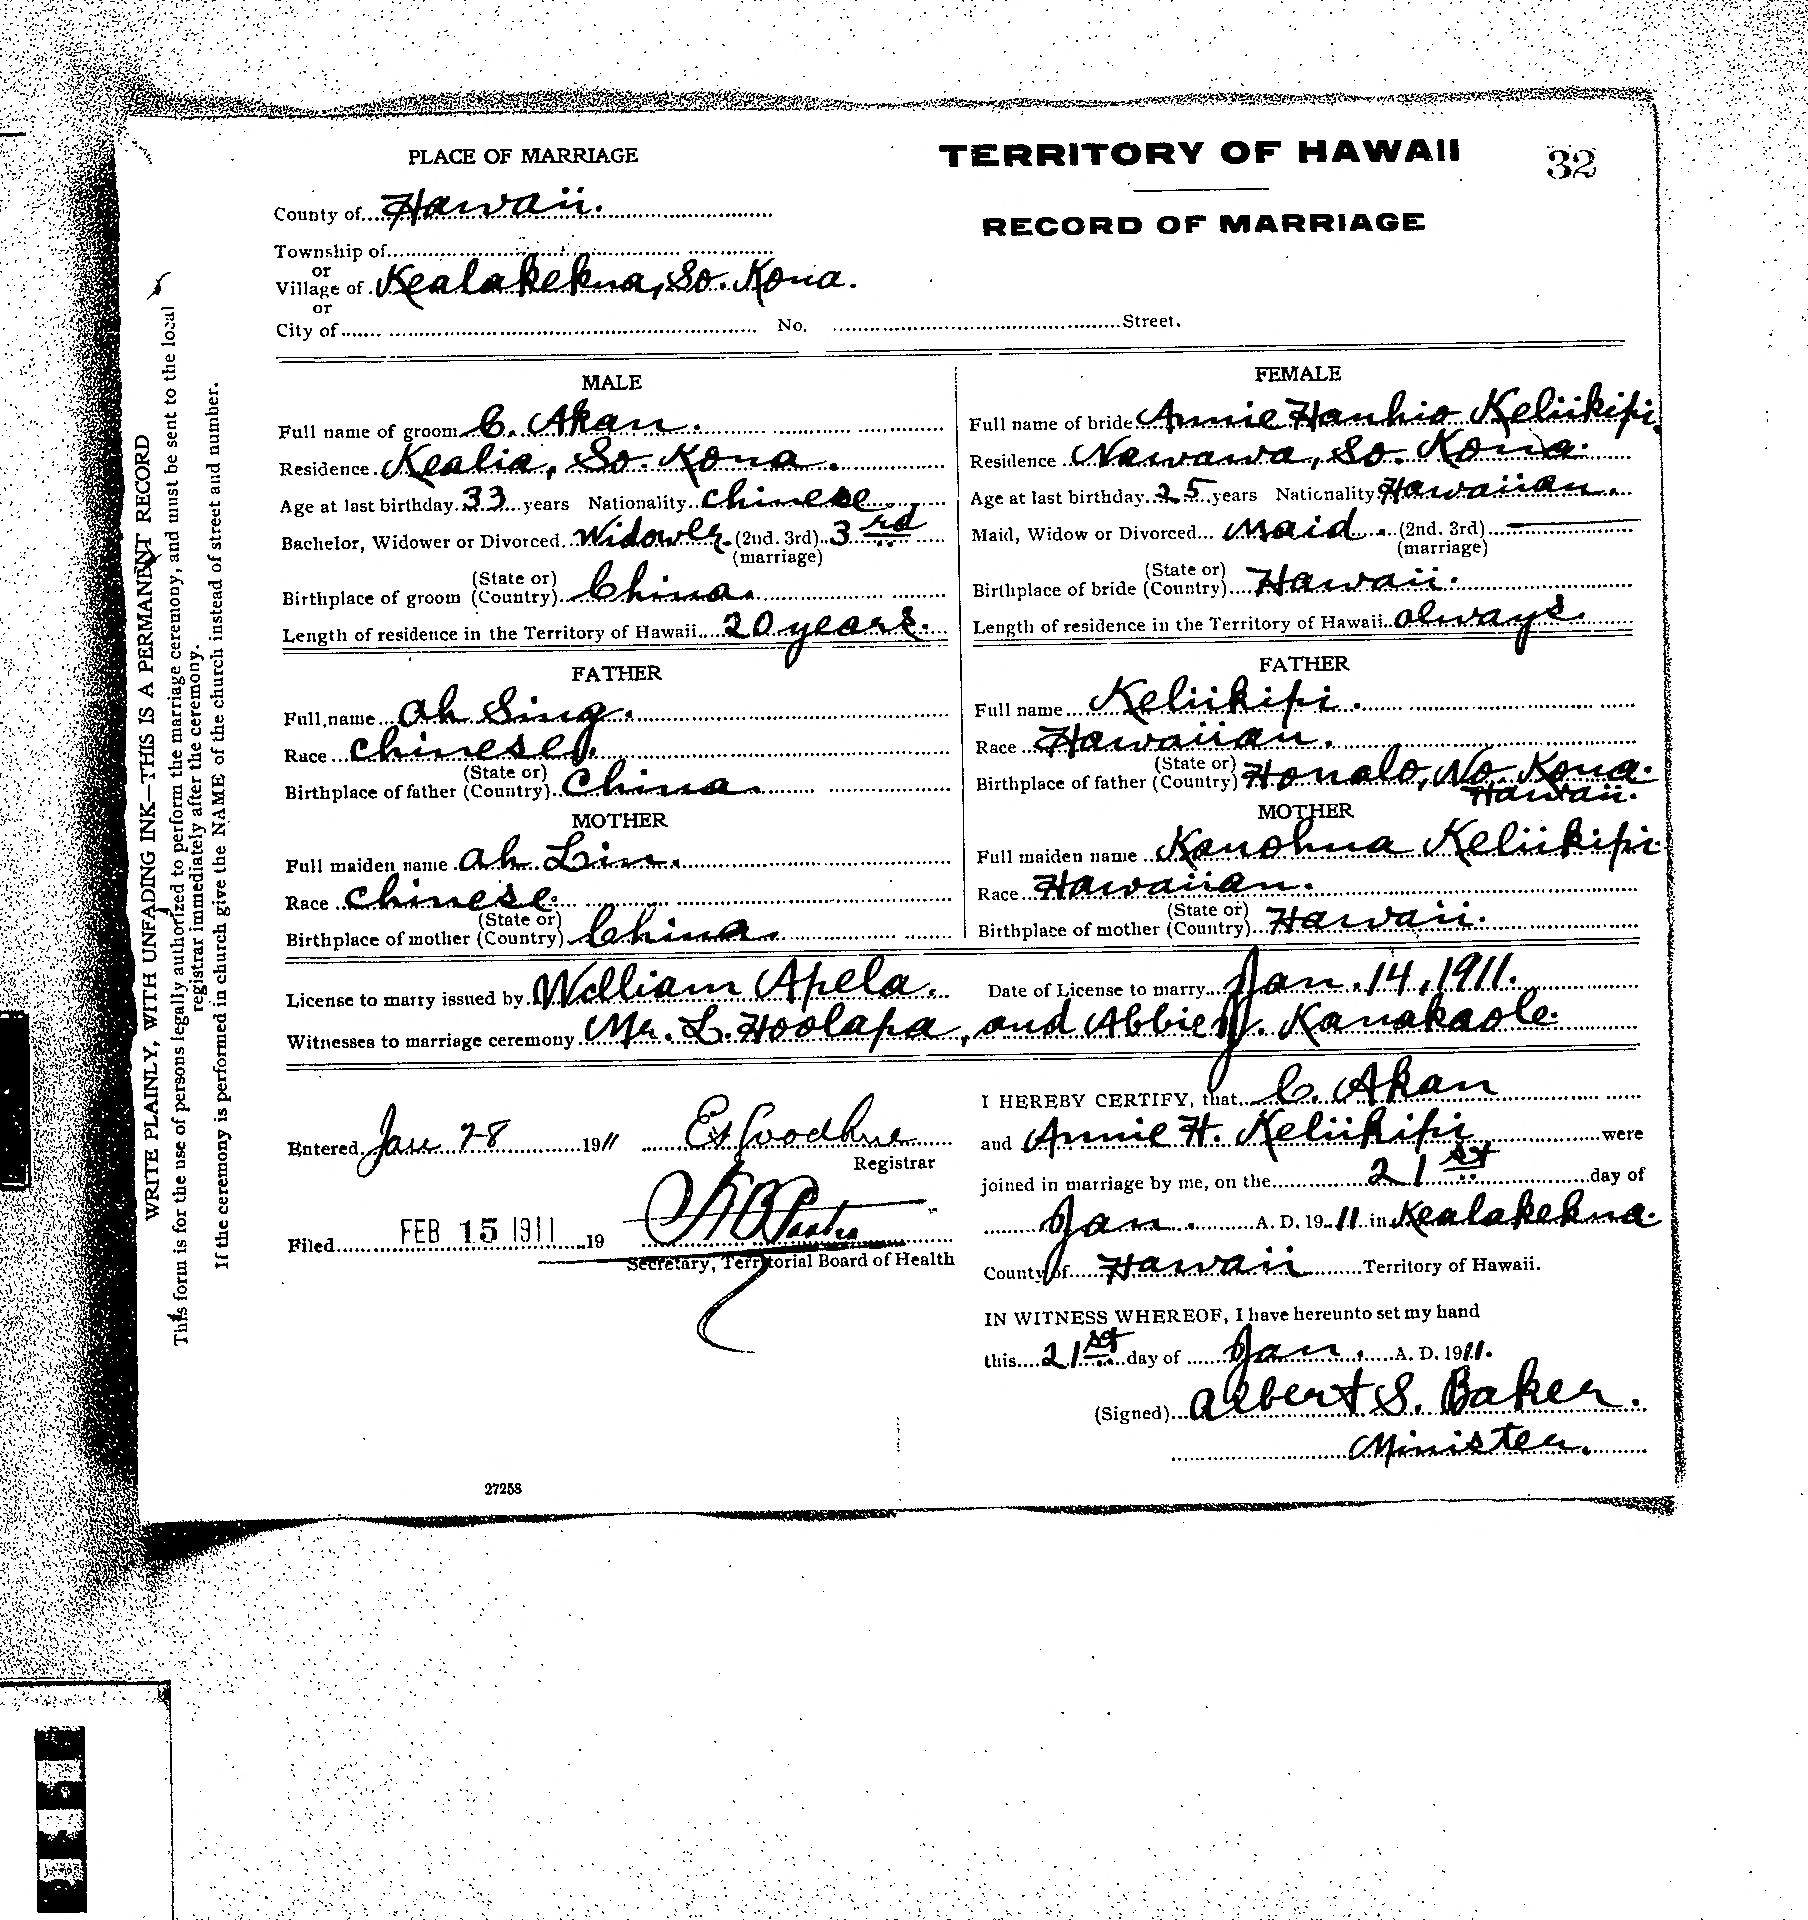 PLACE OF MARRIAGE
TERRITORY OF HAWAII
32
RECORD OF MARRIAGE
County of Hawaii.
Township of
or
Village of Kealakekua, So. Kona.
or
City of No. Street.
WRITE PLAINLY, WITH UNFADING INK—THIS IS A PERMANENT RECORD
This form is for the use of persons legally authorized to perform the marriage ceremony, and must be sent to the local
registrar immediately after the ceremony.
If the ceremony is performed in church give the NAME of the church instead of street and number.
MALE
Full name of groom C. Akan.
Residence Kealia, So. Kona.
Age at last birthday 33 years Nationality Chinese
Bachelor, Widower or Divorced Widower. (2nd. 3rd) 3rd
(marriage)
(State or)
Birthplace of groom (Country) China.
Length of residence in the Territory of Hawaii 20 years.
FATHER
Full name Ah Sing.
Race Chinese.
(State or)
Birthplace of father (Country) China.
MOTHER
Full maiden name Ah Lin.
Race Chinese.
(State or)
Birthplace of mother (Country) China.
FEMALE
Full name of bride Annie Hanhio Keliikipi.
Residence Nawawa, So. Kona.
Age at last birthday 25 years Nationality Hawaiian.
Maid, Widow or Divorced Maid. (2nd. 3rd)
(marriage)
(State or)
Birthplace of bride (Country) Hawaii.
Length of residence in the Territory of Hawaii always.
FATHER
Full name Keliikipi.
Race Hawaiian.
(State or)
Birthplace of father (Country) Honalo, No. Kona.
Hawaii.
MOTHER
Full maiden name Kanohua Keliikipi
Race Hawaiian.
(State or)
Birthplace of mother (Country) Hawaii.
License to marry issued by William Apela. Date of License to marry Jan. 14, 1911.
Witnesses to marriage ceremony Mr. L. Hoolapa, and Abbie J. Kanakaole.
Entered Jan 28 1911 E S Goodhue
Registrar
Filed FEB 15 1911 19
Secretary, Territorial Board of Health
I HEREBY CERTIFY, that C. Akan
and Annie H. Keliikipi were
joined in marriage by me, on the 21st day of
Jan. A. D. 1911 in Kealakekua.
County of Hawaii Territory of Hawaii.
IN WITNESS WHEREOF, I have hereunto set my hand
this 21st day of Jan. A. D. 1911.
(Signed) Albert S. Baker.
Minister.
27258